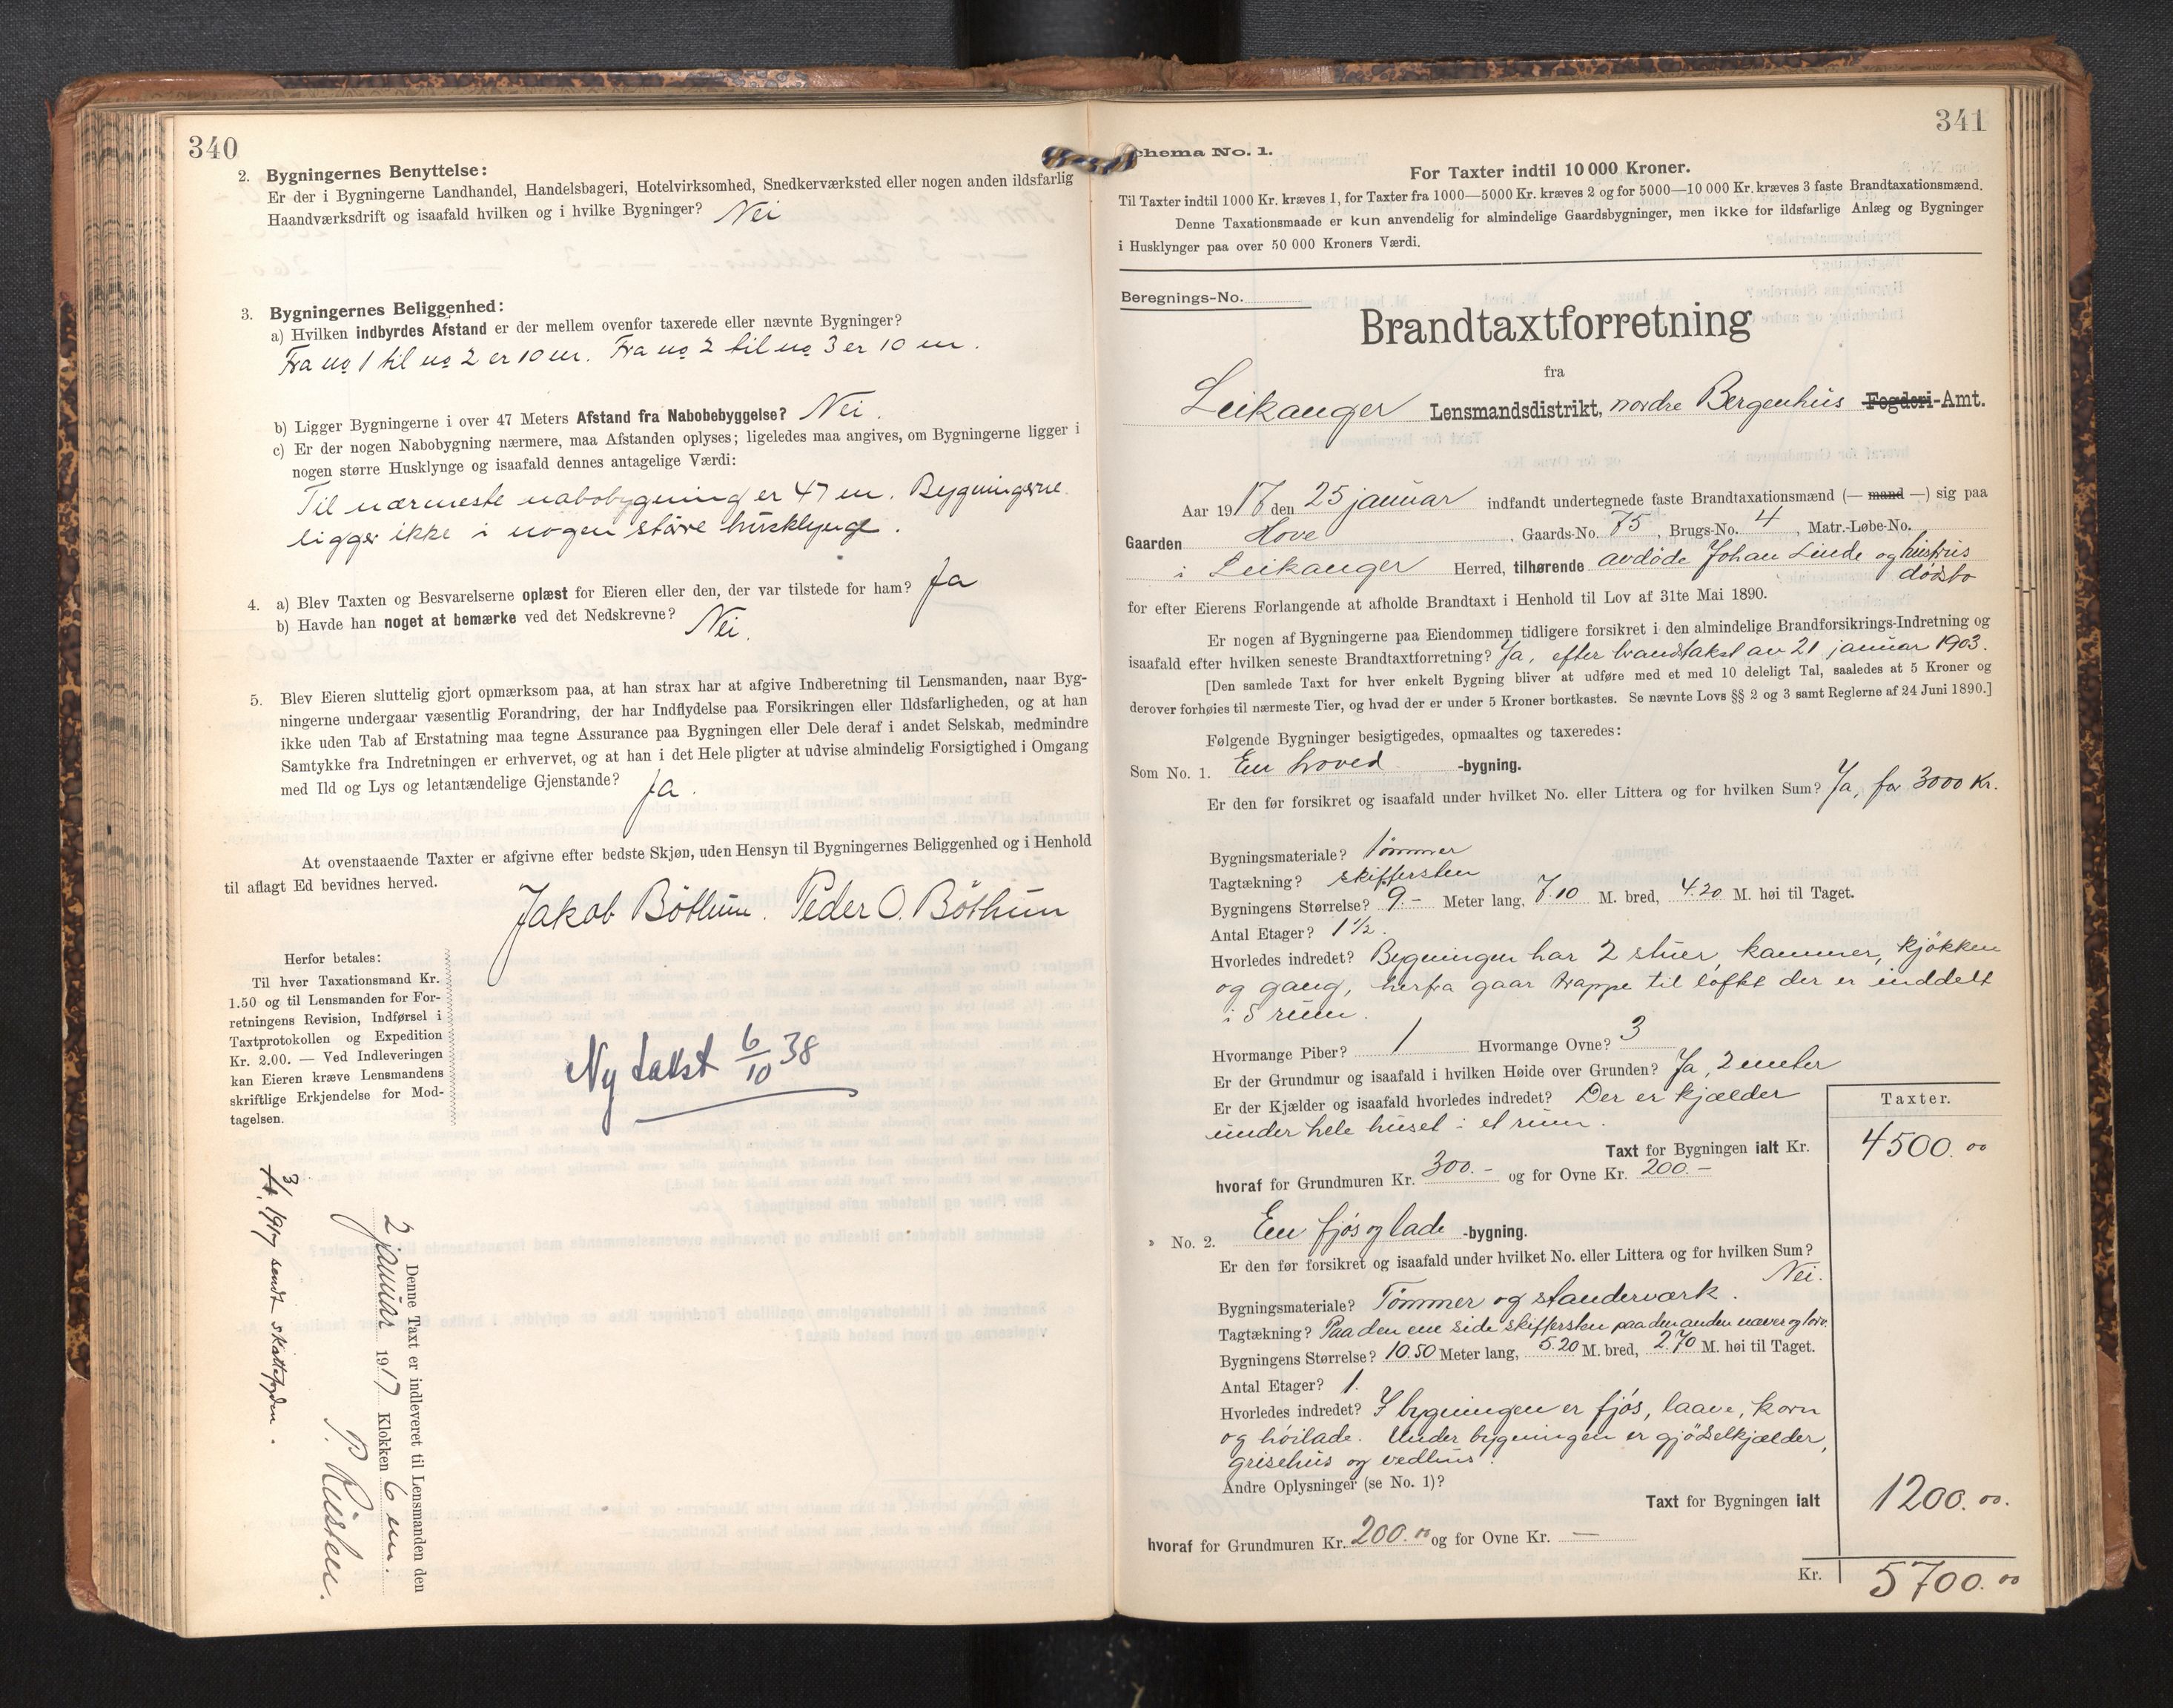 340
2. Bygningernes Benyttelse:
Er der i Bygningerne Landhandel, Handelsbageri, Hotelvirksomhed, Snedkerværksted eller nogen anden ildsfarlig
Haandværksdrift og isaafald hvilken og i hvilke Bygninger? Nei
3. Bygningernes Beliggenhed:
a) Hvilken indbyrdes Afstand er der mellem ovenfor taxerede eller nævnte Bygninger?
Fra no 1 til no 2 er 10 m. Fra no 2 til no 3 er 10 m.
b) Ligger Bygningerne i over 47 Meters Afstand fra Nabobebyggelse? Nei.
c) Er der nogen Nabobygning nærmere, maa Afstanden oplyses; ligeledes maa angives, om Bygningerne ligger i
nogen større Husklynge og isaafald dennes antagelige Værdi:
Til nærmeste nabobygning er 47 m. Bygningerne
ligger ikke i nogen större husklynge.
4. a) Blev Taxten og Besvarelserne oplæst for Eieren eller den, der var tilstede for ham? Ja
b) Havde han noget at bemærke ved det Nedskrevne? Nei.
5. Blev Eieren sluttelig gjort opmærksom paa, at han strax har at afgive Indberetning til Lensmanden, naar Byg-
ningerne undergaar væsentlig Forandring, der har Indflydelse paa Forsikringen eller Ildsfarligheden, og at han
ikke uden Tab af Erstatning maa tegne Assurance paa Bygningen eller Dele deraf i andet Selskab, medmindre
Samtykke fra Indretningen er erhvervet, og at han i det Hele pligter at udvise almindelig Forsigtighed i Omgang
med Ild og Lys og letantændelige Gjenstande? Ja.
At ovenstaaende Taxter er afgivne efter bedste Skjøn, uden Hensyn til Bygningernes Beliggenhed og i Henhold
til aflagt Ed bevidnes herved.
Jakob Böthun. Peder O. Böthun
Herfor betales:
Til hver Taxationsmand Kr.
1.50 og til Lensmanden for For-
retningens Revision, Indførsel i
Taxtprotokollen og Expedition
Kr. 2.00. — Ved Indleveringen
kan Eieren kræve Lensmandens
skriftlige Erkjendelse for Mod-
tagelsen.
Ny takst 6/10 38
Denne Taxt er indleveret til Lensmanden den
2 januar 1917 Klokken 6 em.
3/1 1917 sendt skattefogden.
341
chema No. 1.
For Taxter indtil 10 000 Kroner.
Til Taxter indtil 1000 Kr. kræves 1, for Taxter fra 1000—5000 Kr. kræves 2 og for 5000—10 000 Kr. kræves 3 faste Brandtaxationsmænd.
Denne Taxationsmaade er kun anvendelig for almindelige Gaardsbygninger, men ikke for ildsfarlige Anlæg og Bygninger
i Husklynger paa over 50 000 Kroners Værdi.
Beregnings-No.
Brandtaxtforretning
fra
Leikanger Lensmandsdistrikt, nordre Bergenhus Fogderi-Amt.
Aar 1917 den 25 januar indfandt undertegnede faste Brandtaxationsmænd (— mand —) sig paa
Gaarden Hove, Gaards-No. 75, Brugs-No. 4, Matr.-Løbe-No.
i Leikanger Herred, tilhørende avdöde Johan Linde og hustrus
dödsbo
for efter Eierens Forlangende at afholde Brandtaxt i Henhold til Lov af 31te Mai 1890.
Er nogen af Bygningerne paa Eiendommen tidligere forsikret i den almindelige Brandforsikrings-Indretning og
isaafald efter hvilken seneste Brandtaxtforretning? Ja, efter brandtakst av 21 januar 1903.
[Den samlede Taxt for hver enkelt Bygning bliver at udføre med et med 10 deleligt Tal, saaledes at 5 Kroner og
derover forhøies til nærmeste Tier, og hvad der er under 5 Kroner bortkastes. Se nævnte Lovs §§ 2 og 3 samt Reglerne af 24 Juni 1890.]
Følgende Bygninger besigtigedes, opmaaltes og taxeredes:
Som No. 1. En hoved -bygning.
Er den før forsikret og isaafald under hvilket No. eller Littera og for hvilken Sum? Ja, for 3000 Kr.
Bygningsmateriale? Tömmer
Tagtækning? Skiffersten
Bygningens Størrelse? 9.- Meter lang, 7.10 M. bred, 4.20 M. høi til Taget.
Antal Etager? 1 1/2.
Hvorledes indredet? Bygningen har 2 stuer, kammer, kjökken
og gang, herfra gaar trappe til loftet der er inddelt
i 5 rum.
Hvormange Piber? 1 Hvormange Ovne? 3
Er der Grundmur og isaafald i hvilken Høide over Grunden? Ja, 2 meter
Er der Kjælder og isaafald hvorledes indredet? Der er kjælder
under hele huset i et rum.
Taxter.
Taxt for Bygningen ialt Kr. 4500.00
hvoraf for Grundmuren Kr. 300.- og for Ovne Kr. 200.-
» No. 2. En fjös og lade -bygning.
Er den før forsikret og isaafald under hvilket No. eller Littera og for hvilken Sum?
Nei.
Bygningsmateriale? Tömmer og standerværk.
Tagtækning? Paa den ene side skiffersten paa den anden næver og torv.
Bygningens Størrelse? 10.50 Meter lang, 5.20 M. bred, 2.70 M. høi til Taget.
Antal Etager? 1.
Hvorledes indredet? I bygningen er fjös, laave, korn
og höilade. Under bygningen er gjödselkjælder,
grisehus og vedhus.
Andre Oplysninger (se No. 1)?
Taxt for Bygningen ialt 1200.00.
hvoraf for Grundmuren Kr. 200.00 og for Ovne Kr. —
Kr. 5700.00